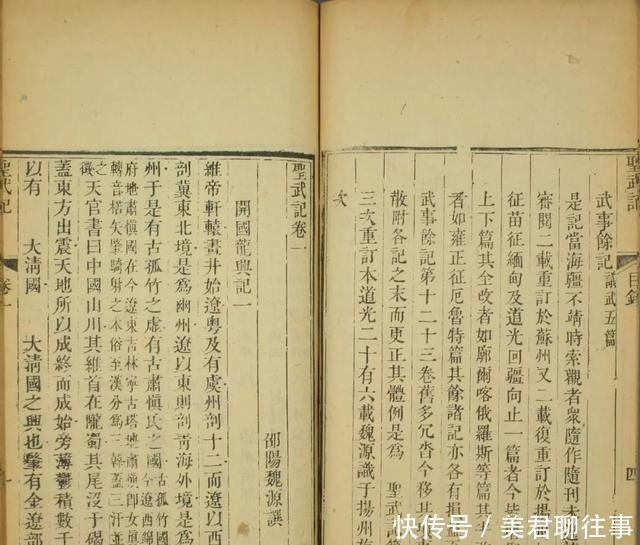 聖武記
目錄
四
武事餘記 議武五篇
是記當海疆不靖時索觀者衆隨作隨刊未
審閱二載重訂於蘇州又二載復重訂於揚
征苗征緬甸及道光回疆向止一篇者今皆
上下篇其全改者如廓爾喀俄羅斯等篇其
者如雍正征厄魯特篇其餘諸記亦各有損
武事餘記第十二十三卷舊多冗沓今移其
散附各記之末而更正其體例是爲 聖武記
三次重訂本道光二十有六載魏源識于揚州
次
聖武記卷一
邵陽魏源譔
開國龍興記一
維帝軒轅畫井始遼粤及有虞州剖十二而遼以西
剖冀東北境是爲幽州遼以東則剖青海外境是爲
州于是有古孤竹之虛有古肅愼氏之國 古孤竹國今遼西錦
府地肅愼國在今遼東吉林寧古塔地肅愼卽女眞
轉音楛矢肇騎射之本俗至漢分爲三韓蓋三汗並
之徵 天官書曰中國山川其維首在隴蜀其尾沒于碣
蓋東方出震天地所以成終而成始旁薄鬱積數千
以有 大淸國 大淸國之興也肇有金遼部
聖武記
卷一
一
快传号／美君聊往事